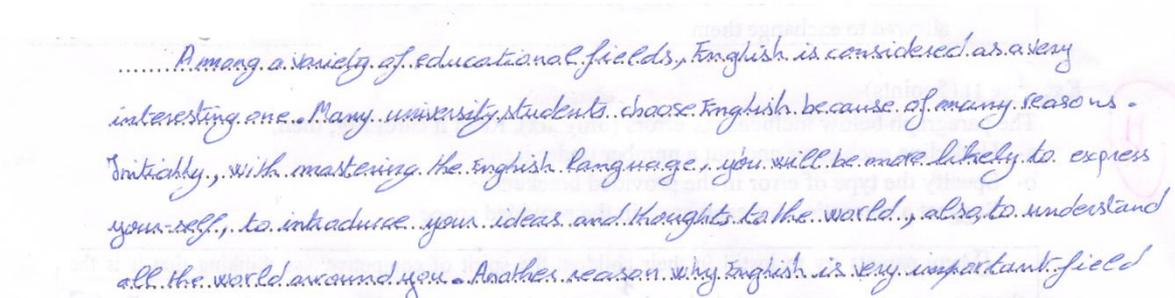 Among a variety of educational fields, English is considered as a very
interesting one. Many university students choose English because of many reasons.
Initially, with mastering the English language, you will be more likely to express
your-self, to introduce your ideas and thoughts to the world, also, to understand
all the world around you. Another reason why English is very important field